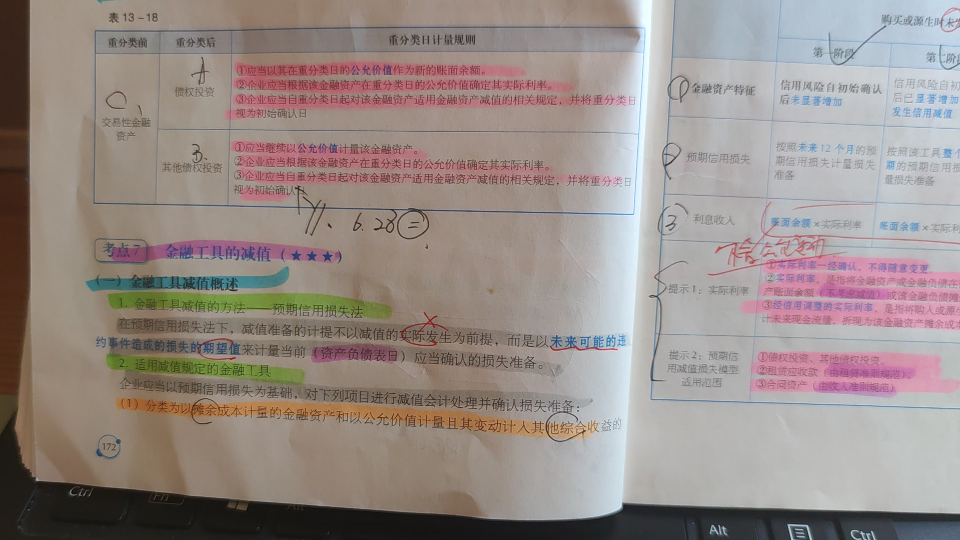 表 13-18
重分类前 重分类后 重分类日计量规则
C
交易性金融
资产
A
债权投资
①应当以其在重分类日的公允价值作为新的账面余额。
②企业应当根据该金融资产在重分类日的公允价值确定其实际利率。
③企业应当自重分类日起对该金融资产适用金融资产减值的相关规定，并将重分类日
视为初始确认日
B.
其他债权投资
①应当继续以公允价值计量该金融资产。
②企业应当根据该金融资产在重分类日的公允价值确定其实际利率。
③企业应当自重分类日起对该金融资产适用金融资产减值的相关规定，并将重分类日
视为初始确认
6.28 二
考点 7 金融工具的减值（★★★）
（一）金融工具减值概述
1. 金融工具减值的方法——预期信用损失法
在预期信用损失法下，减值准备的计提不以减值的实际发生为前提，而是以未来可能的违
约事件造成的损失的期望值来计量当前（资产负债表日）应当确认的损失准备。
2. 适用减值规定的金融工具
企业应当以预期信用损失为基础，对下列项目进行减值会计处理并确认损失准备：
（1）分类为以摊余成本计量的金融资产和以公允价值计量且其变动计入其他综合收益的
172
购买或源生时未发
第一阶段 第二阶段
①金融资产特征
信用风险自初始确认
后未显著增加
信用风险自初
后已显著增加
发生信用减值
② 预期信用损失
按照未来 12 个月的预
期信用损失计量损失
准备
按照该工具整个
期的预期信用损
量损失准备
③ 利息收入
账面余额×实际利率
账面余额×实际利
提示 1：实际利率
①实际利率一经确认，不得随意变更
②实际利率，是指将金融资产或金融负债在
产账面余额（不考虑减值）或该金融负债摊
③经信用调整的实际利率，是指将购入或源
计未来现金流量，折现为该金融资产摊余成本
提示 2：预期信
用减值损失模型
适用范围
①债权投资、其他债权投资。
②租赁应收款（由租赁准则规范）
③合同资产（由收入准则规范）
Ctrl
Alt
Ctrl